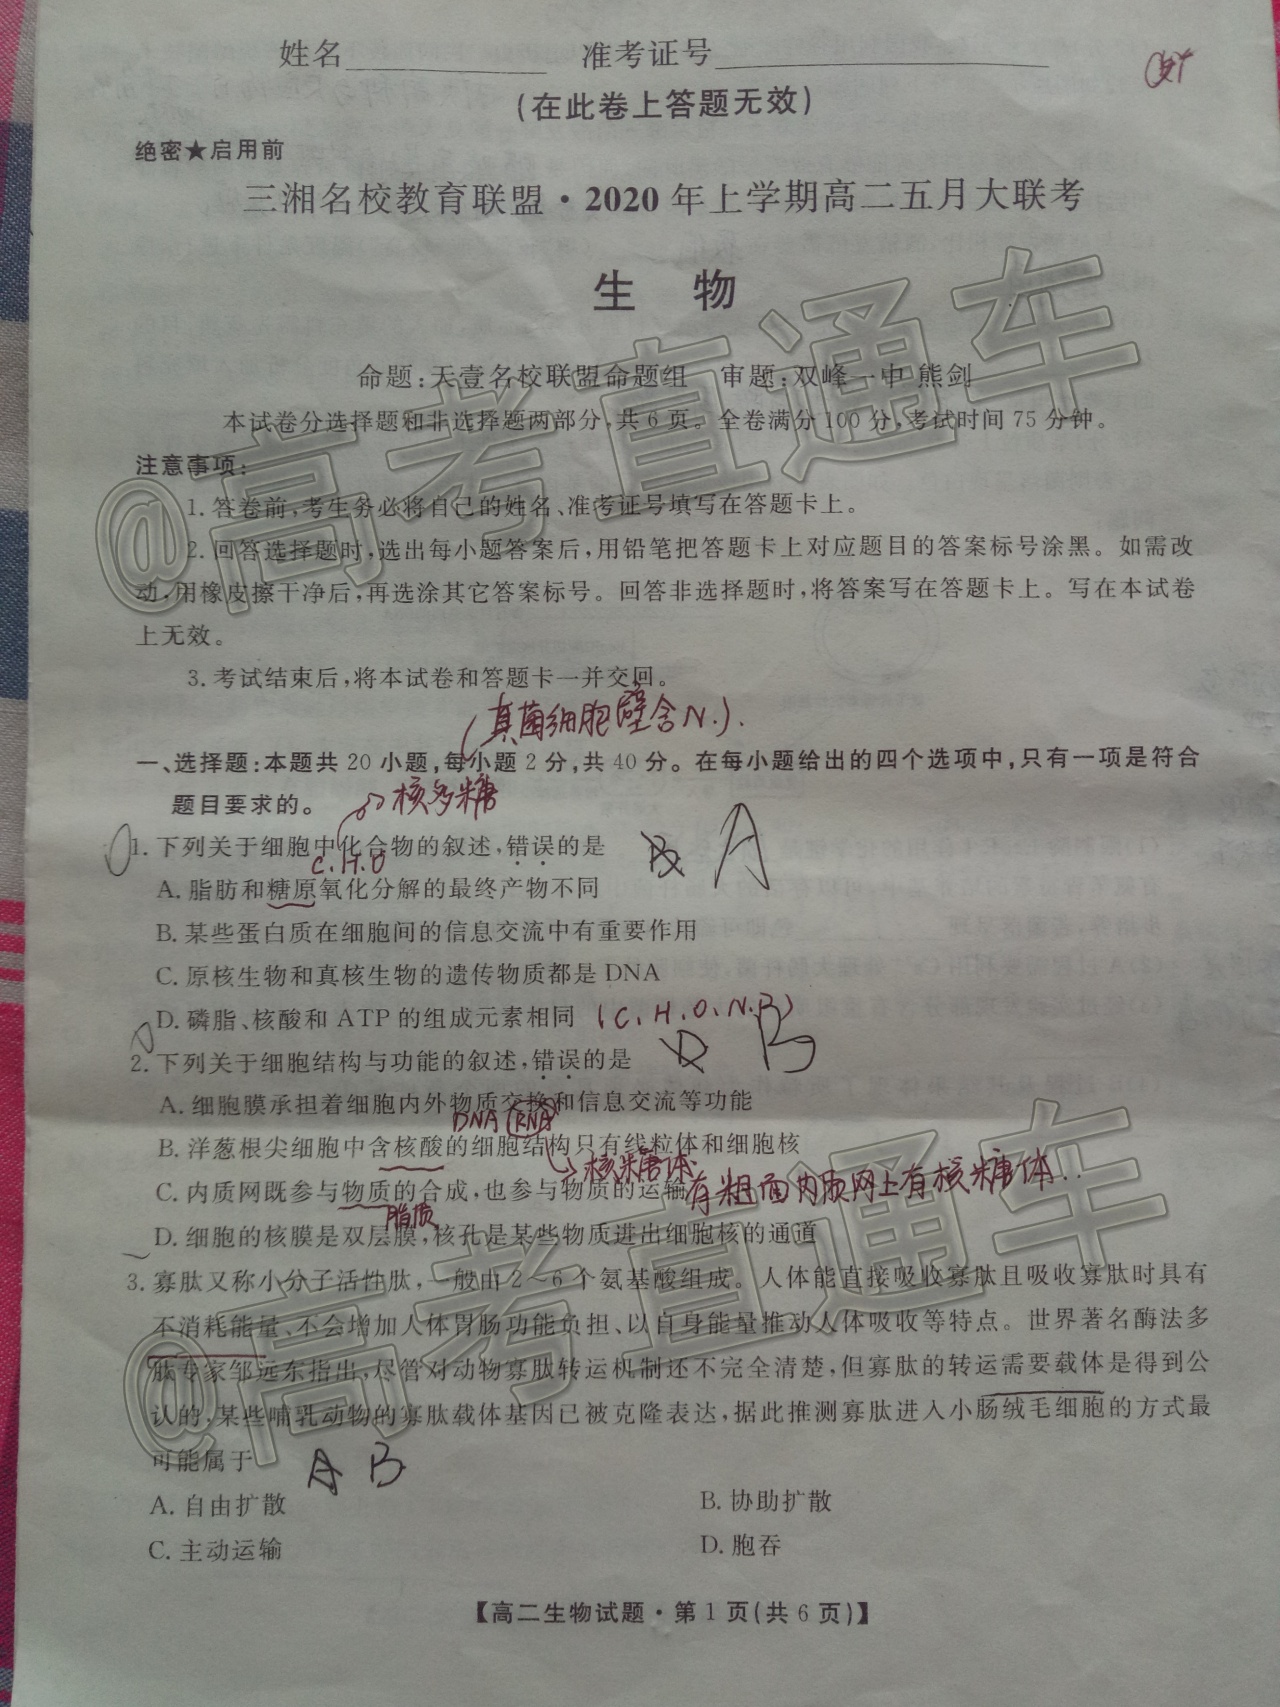 姓名 准考证号
(在此卷上答题无效)
绝密★启用前
三湘名校教育联盟·2020年上学期高二五月大联考
生 物
命题:天壹名校联盟命题组 审题:双峰一中 熊剑
本试卷分选择题和非选择题两部分,共6页。全卷满分100分,考试时间75分钟。
注意事项:
1.答卷前,考生务必将自己的姓名、准考证号填写在答题卡上。
2.回答选择题时,选出每小题答案后,用铅笔把答题卡上对应题目的答案标号涂黑。如需改
动,用橡皮擦干净后,再选涂其它答案标号。回答非选择题时,将答案写在答题卡上。写在本试卷
上无效。
3.考试结束后,将本试卷和答题卡一并交回。
(真菌细胞壁含N.).
一、选择题:本题共20小题,每小题2分,共40分。在每小题给出的四个选项中,只有一项是符合
题目要求的。
核多糖
1.下列关于细胞中化合物的叙述,错误的是
A
C.H.O
A.脂肪和糖原氧化分解的最终产物不同
B.某些蛋白质在细胞间的信息交流中有重要作用
C.原核生物和真核生物的遗传物质都是DNA
D.磷脂、核酸和ATP的组成元素相同
(C.H.O.N.P)
2.下列关于细胞结构与功能的叙述,错误的是
B
A.细胞膜承担着细胞内外物质交换和信息交流等功能
DNA RNA
B.洋葱根尖细胞中含核酸的细胞结构只有线粒体和细胞核
核糖体
C.内质网既参与物质的合成,也参与物质的运输
有粗面内质网上有核糖体..
脂质
D.细胞的核膜是双层膜,核孔是某些物质进出细胞核的通道
3.寡肽又称小分子活性肽,一般由2~6个氨基酸组成。人体能直接吸收寡肽且吸收寡肽时具有
不消耗能量、不会增加人体胃肠功能负担、以自身能量推动人体吸收等特点。世界著名酶法多
肽专家邹远东指出,尽管对动物寡肽转运机制还不完全清楚,但寡肽的转运需要载体是得到公
认的,某些哺乳动物的寡肽载体基因已被克隆表达,据此推测寡肽进入小肠绒毛细胞的方式最
可能属于
A B
A.自由扩散 B.协助扩散
C.主动运输 D.胞吞
【高二生物试题·第1页(共6页)】
@高考直通车
@高考直通车